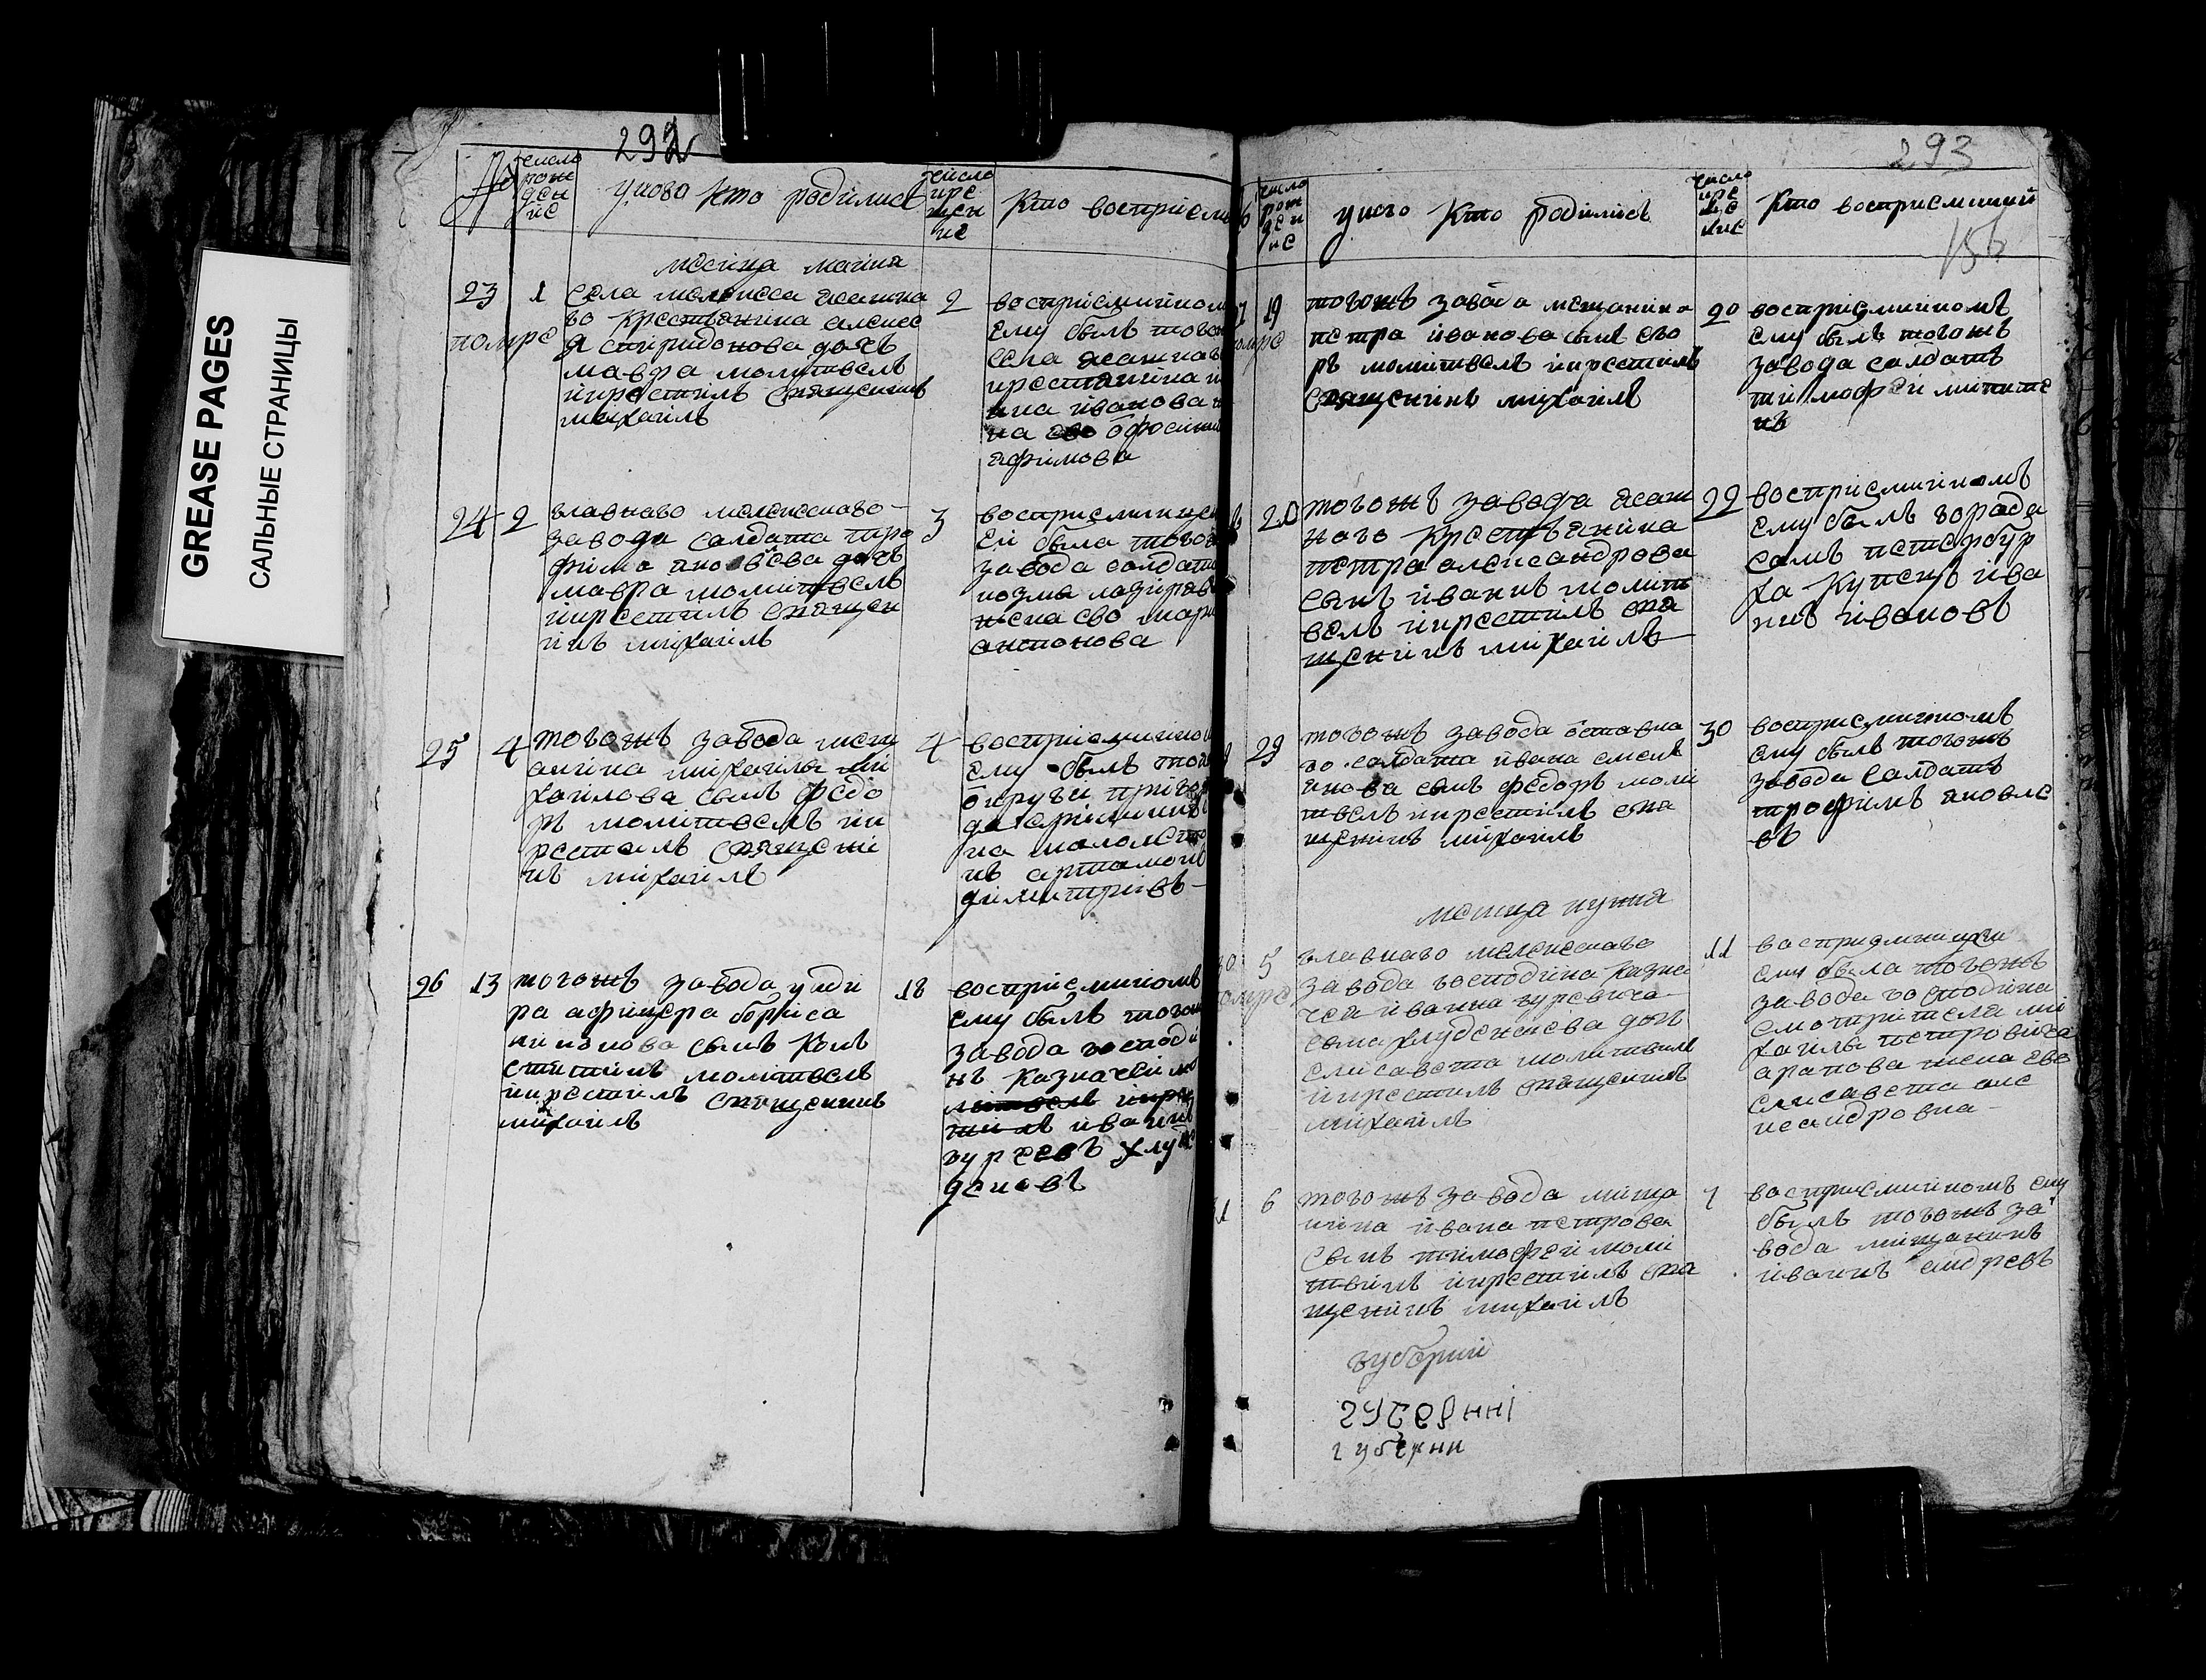 GREASE PAGES
САЛЬНЫЕ СТРАНИЦЫ
292
№
число рождение
у ково кто родились
число крещение
кто восприемн
месица маиия
23
1
села мелекеса ясашна
го крестьянина алексе
я спиридонова дочь
мавра молитвелъ
икрестилъ священикъ
михаилъ
помре
2
восприемникомъ
ему былъ тогож
села ясашнаго
крестянина
ивановa
на ево офросиния
ефимова
24
2
главнаго мелекескаго
завода салдата тро
фима яковлева дочь
мавра молитвелъ
икрестилъ священ
икъ михаилъ
3
восприемницею
ей была тогож
завода салдата
козмы лазарева
жена ево марья
антонова
25
4
тогожъ завода мещ
анина михаила ми
хаилова сынъ федо
ръ молитвелъ ик
рестилъ священи
къ михаилъ
4
восприемником
ему былъ той
округи
артамонъ
димитриевъ
26
13
тогожъ завода унди
ра афицера бориса
никонова сынъ конъ
стинтинъ молитвелъ
икрестилъ священикъ
михаилъ
18
восприемникомъ
ему былъ тогож
завода господи
нъ казначей
иванъ
гурьевъ хлу
деневъ
293
число рождение
у ково кто родились
число крещение
кто восприемники
156
19
помре
тогожъ завода мещанина
петра иванова сынъ его
ръ молитвелъ икрестилъ
священикъ михаилъ
20
восприемникомъ
ему былъ тогожъ
завода салдатъ
тимофей миките
нъ
20
тогожъ завода ясаш
наго крестьянина
петра александрова
сынъ иванъ молит
велъ икрестилъ свя
щеникъ михаилъ
22
восприемникомъ
ему былъ города
санъ петербур
ха купецъ ива
нъ ивановъ
29
тогожъ завода отставна
го салдата ивана емель
янова сынъ федоръ моли
твелъ икрестилъ свя
щеникъ михаилъ
30
восприемникомъ
ему былъ тогожъ
завода салдатъ
трофимъ яковле
въ
месица иуния
30
5
помре
главнаго мелекескаго
завода господина казна
чея ивана гурьевича
сына хлуденева дочь
елисавета молитвилъ
икрестилъ священикъ
михаилъ
11
восприемницею
ему была тогожъ
завода господина
смотрителя ми
хаилы петровича
арапова жена ево
елисавета але
ксандровна
31
6
тогожъ завода мища
нина ивана петрова
сынъ тимофей моли
твилъ икрестилъ свя
щеникъ михаилъ
7
восприемникомъ ему
былъ тогожъ за
вода мищанинъ
иванъ андревъ
губернии
губернии